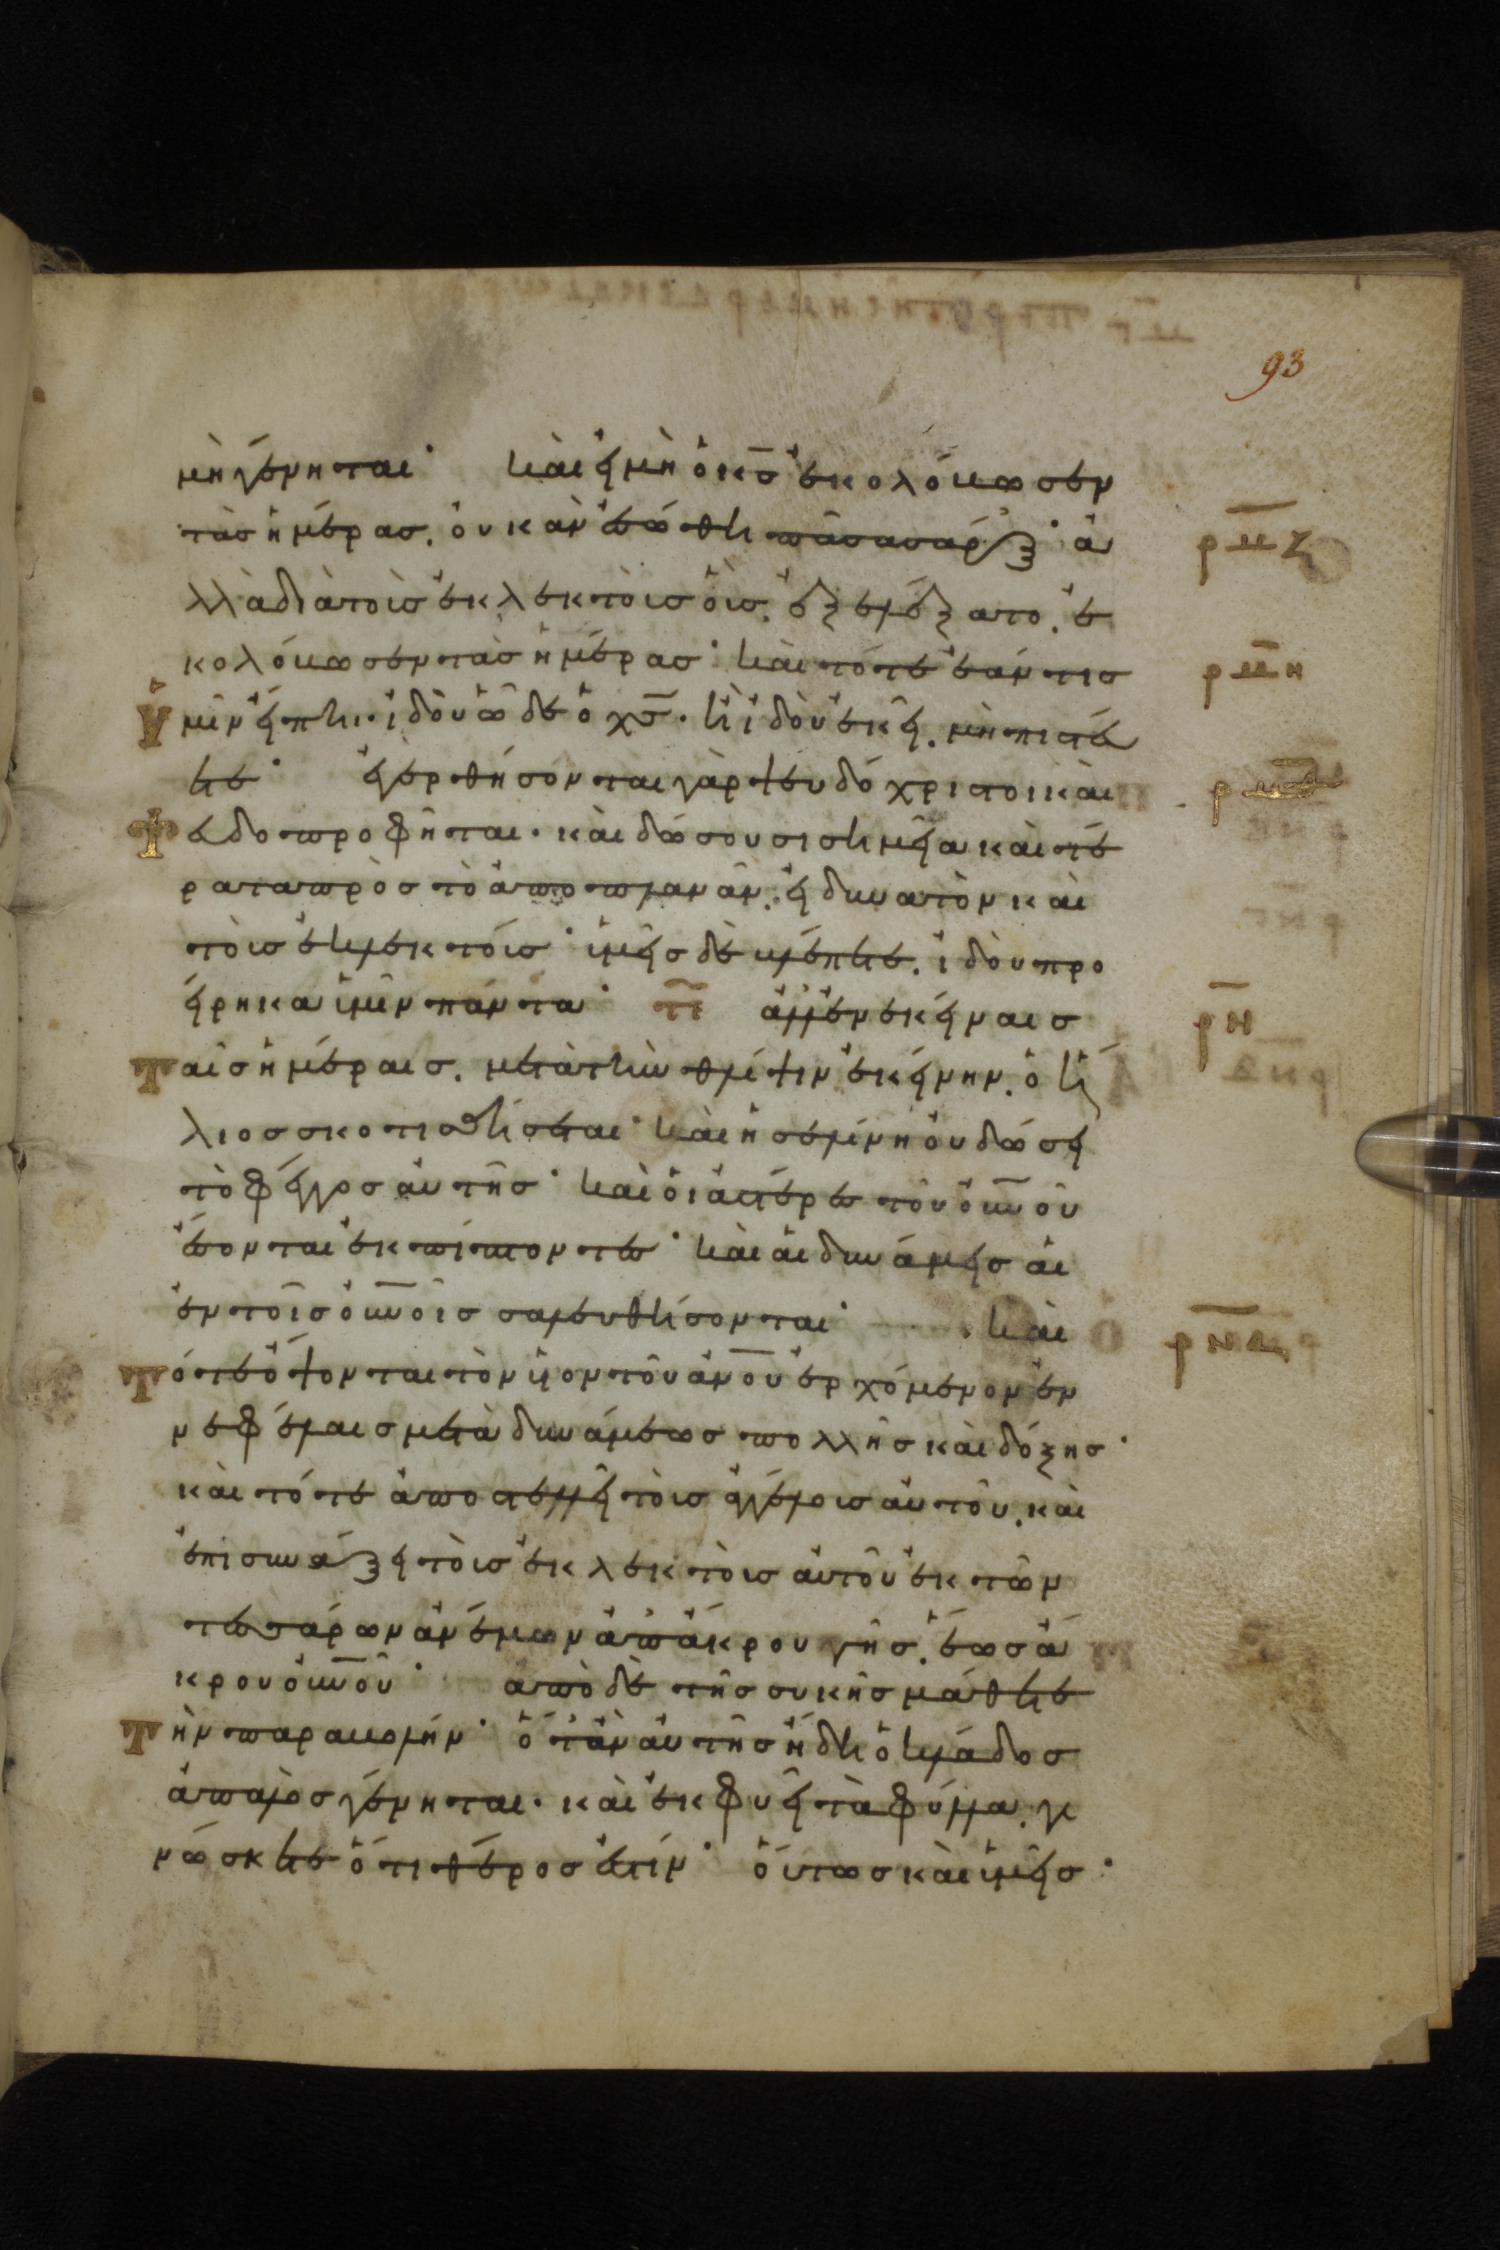 93
μὴ γένηται· καὶ εἰ μὴ ὁ κ̅ς̅ ἐκολόβωσεν
τὰς ἡμέρας, οὐκ ἂν ἐσώθη πᾶσα σάρξ· ἀ
λλὰ διὰ τοὺς ἐκλεκτοὺς οὓς ἐξελέξατο, ἐ
κολόβωσεν τὰς ἡμέρας· καὶ τότε ἐάν τις
ὑμῖν εἴπη· ἰδοὺ ὧδε ὁ χ̅ς̅· ἢ ἰδοὺ ἐκεῖ, μὴ πιστεύε
τε· ἐγερθήσονται γὰρ ψευδόχριστοι καὶ
ψευδοπροφῆται· καὶ δώσουσι σημεῖα καὶ τέ
ρατα πρὸς τὸ ἀποπλανᾶν, εἰ δυνατὸν καὶ
τοὺς ἐκλεκτούς· ὑμεῖς δὲ βλέπετε, ἰδοὺ προ
είρηκα ὑμῖν πάντα· ἀλλ' ἐν ἐκείναις
ταῖς ἡμέραις, μετὰ τὴν θλίψιν ἐκείνην, ὁ ἥ
λιος σκοτισθήσεται· καὶ ἡ σελήνη οὐ δώσει
τὸ φέγγος αὐτῆς· καὶ οἱ ἀστέρες τοῦ ο̅υ̅ν̅οῦ
ἔσονται ἐκπίπτοντες· καὶ αἱ δυνάμεις αἱ
ἐν τοῖς ο̅υ̅ν̅οῖς σαλευθήσονται· καὶ
τότε ὄψονται τὸν υἱὸν τοῦ α̅ν̅ο̅υ̅ ἐρχόμενον ἐν
νεφέλαις μετὰ δυνάμεως πολλῆς καὶ δόξης·
καὶ τότε ἀποστελλεῖ τοὺς ἀγγέλους αὐτοῦ, καὶ
ἐπισυνάξει τοὺς ἐκλεκτοὺς αὐτοῦ ἐκ τῶν
τεσσάρων ἀνέμων ἀπ' ἄκρου γῆς, ἕως ἄ
κρου ο̅υ̅ν̅οῦ· ἀπὸ δὲ τῆς συκῆς μάθετε
τὴν παραβολήν· ὅταν αὐτῆς ἤδη ὁ κλάδος
ἁπαλὸς γένηται· καὶ ἐκφύει τὰ φύλλα, γι
νώσκετε ὅτι θέρος ἐστίν· οὕτως καὶ ὑμεῖς·
ρ̅μ̅ζ
ρ̅μ̅η
ρ̅ν̅
ρ̅ν̅α